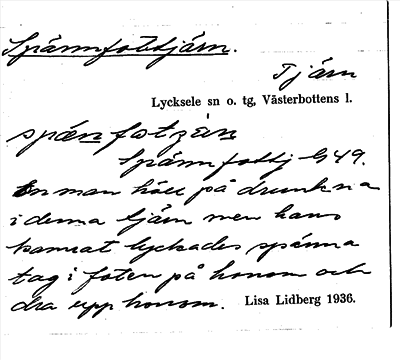 Spännfottjärn.
Tjärn
Lycksele sn o. tg, Västerbottens l.
spänfotzan
Spännfottj G49.
En man höll på drunkna
i denna tjärn men hans
kamrat lyckades spänna
tag i foten på honom och
dra upp honom. Lisa Lidberg 1936.